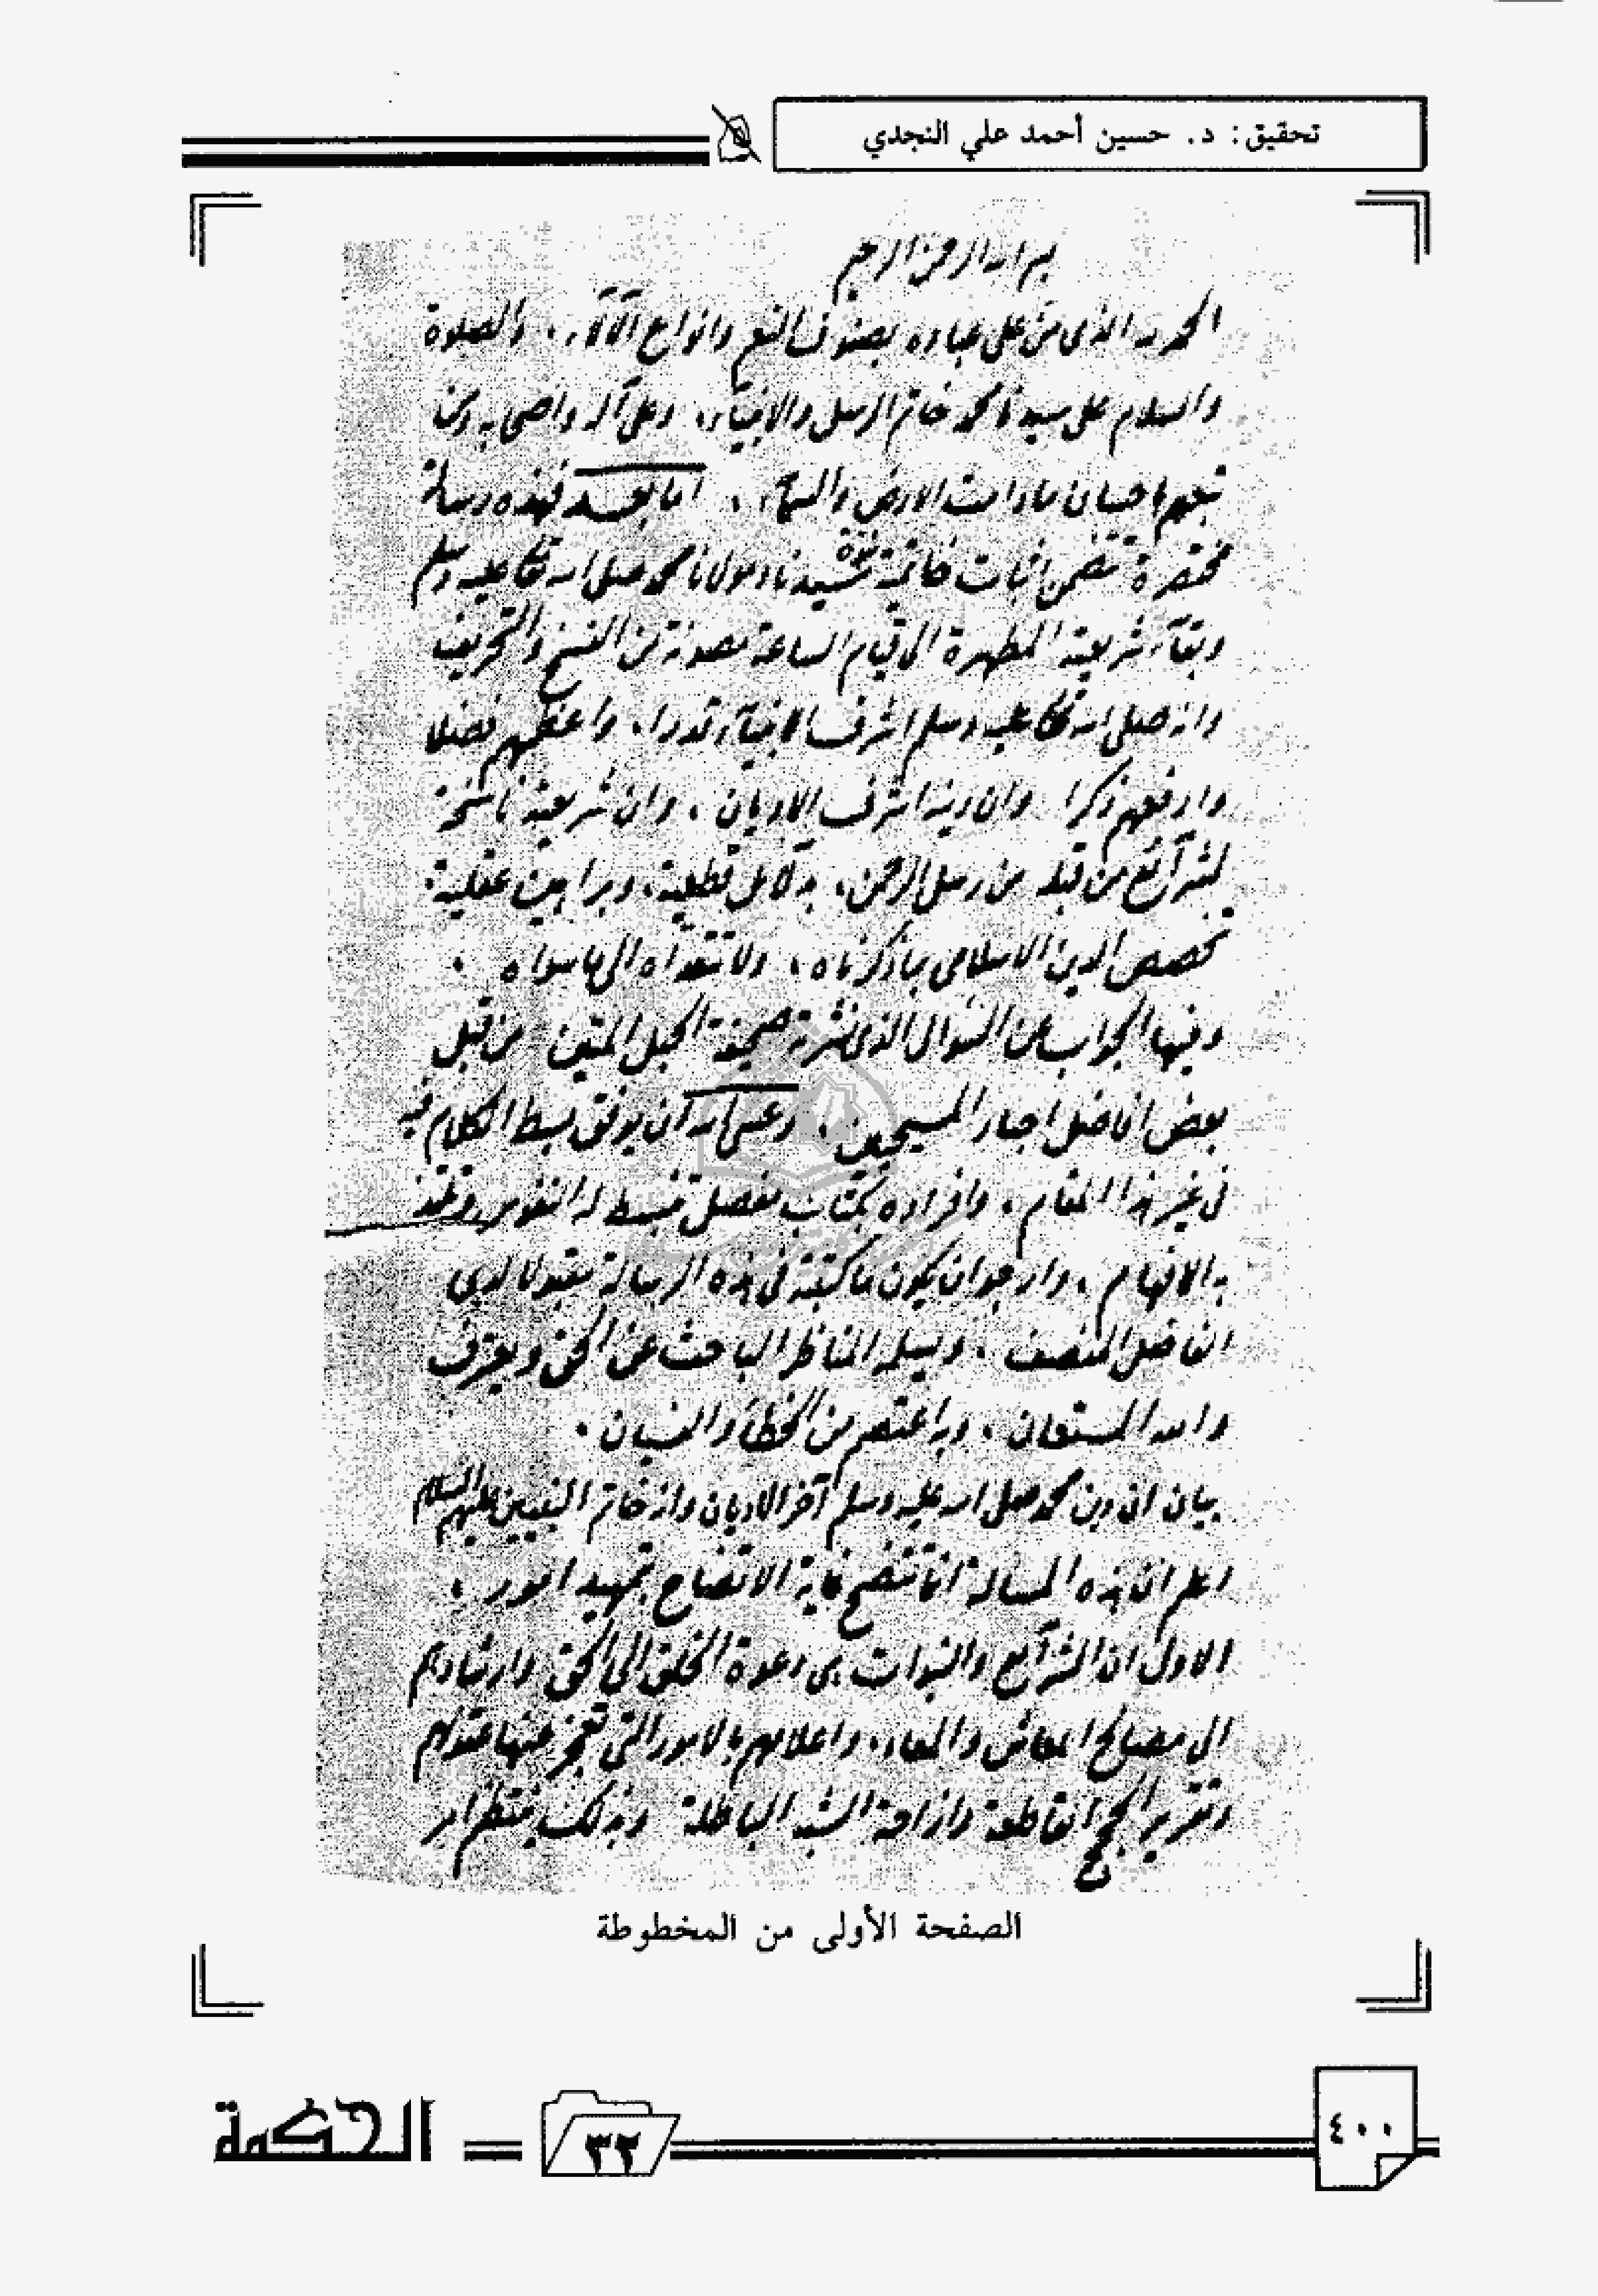 تحقيق: د. حسين أحمد علي النجدي
بسم الله الرحمن الرحيم
الحمد لله الذي منّ على عباده بصنوف النعم وانواع الآلآء، والصلاة
والسلام على سيدنا محمد خاتم الرسل والانبيآء، وعلى آله واصحابه ومن
تبعهم باحسان ما دامت الارض والسمآء، اما بعد فهذه رسالة
مختصرة تتضمن اثبات خاتمية نبوة سيدنا ومولانا محمد صلى الله تعالى عليه وسلم
وبقآء شريعته المطهرة الى قيام الساعة مصونة من النسخ والتحريف
وانه صلى الله تعالى عليه وسلم اشرف الانبيآء قدرا، واعظمهم فضلا
وارفعهم ذكرا وان دينه اشرف الاديان، وان شريعته ناسخة
لشرآئع من قبله من رسل الرحمن، بدلآئل قطعية، وبراهين عقلية،
تخصص الدين الاسلامي بما ذكرناه، ولا تتعداه الى ما سواه،
وفيها الجواب عن السؤال الذي نشرته صحيفة الحبل المتين من قبل
بعض افاضل احبار المسيحيين، وعسى الله ان يوفق لبسط الكلام فيه
في غير هذا المقام، وافراده بكتاب مفصل تنبسط له النفوس وتلتذ
به الافهام، وارجو ان يكون ما كتبته في هذه الرسالة مقبولا لدى
الفاضل المنصف، ويسلمه المناظر الباحث عن الحق ويعترف
والله المستعان، وبه اعتصم من الخطأ والنسيان.
بيان ان دين محمد صلى الله عليه وسلم آخر الاديان وانه خاتم النبيين عليهم السلام
اعلم ان هذه المسالة انما تتضح غاية الاتضاح بتمهيد امور،
الاول ان الشرآئع والنبوات هى دعوة الخلق الى الحق وارشادهم
الى مصالح المعاش والمعاد، واعلامهم بالامور التي تعجز عنها عقولهم
وتقرير الحجج القاطعة وازاحة الشبه الباطلة وبذلك ينتظم امر
الصفحة الأولى من المخطوطة
٤٠٠
٣٢
الحكمة